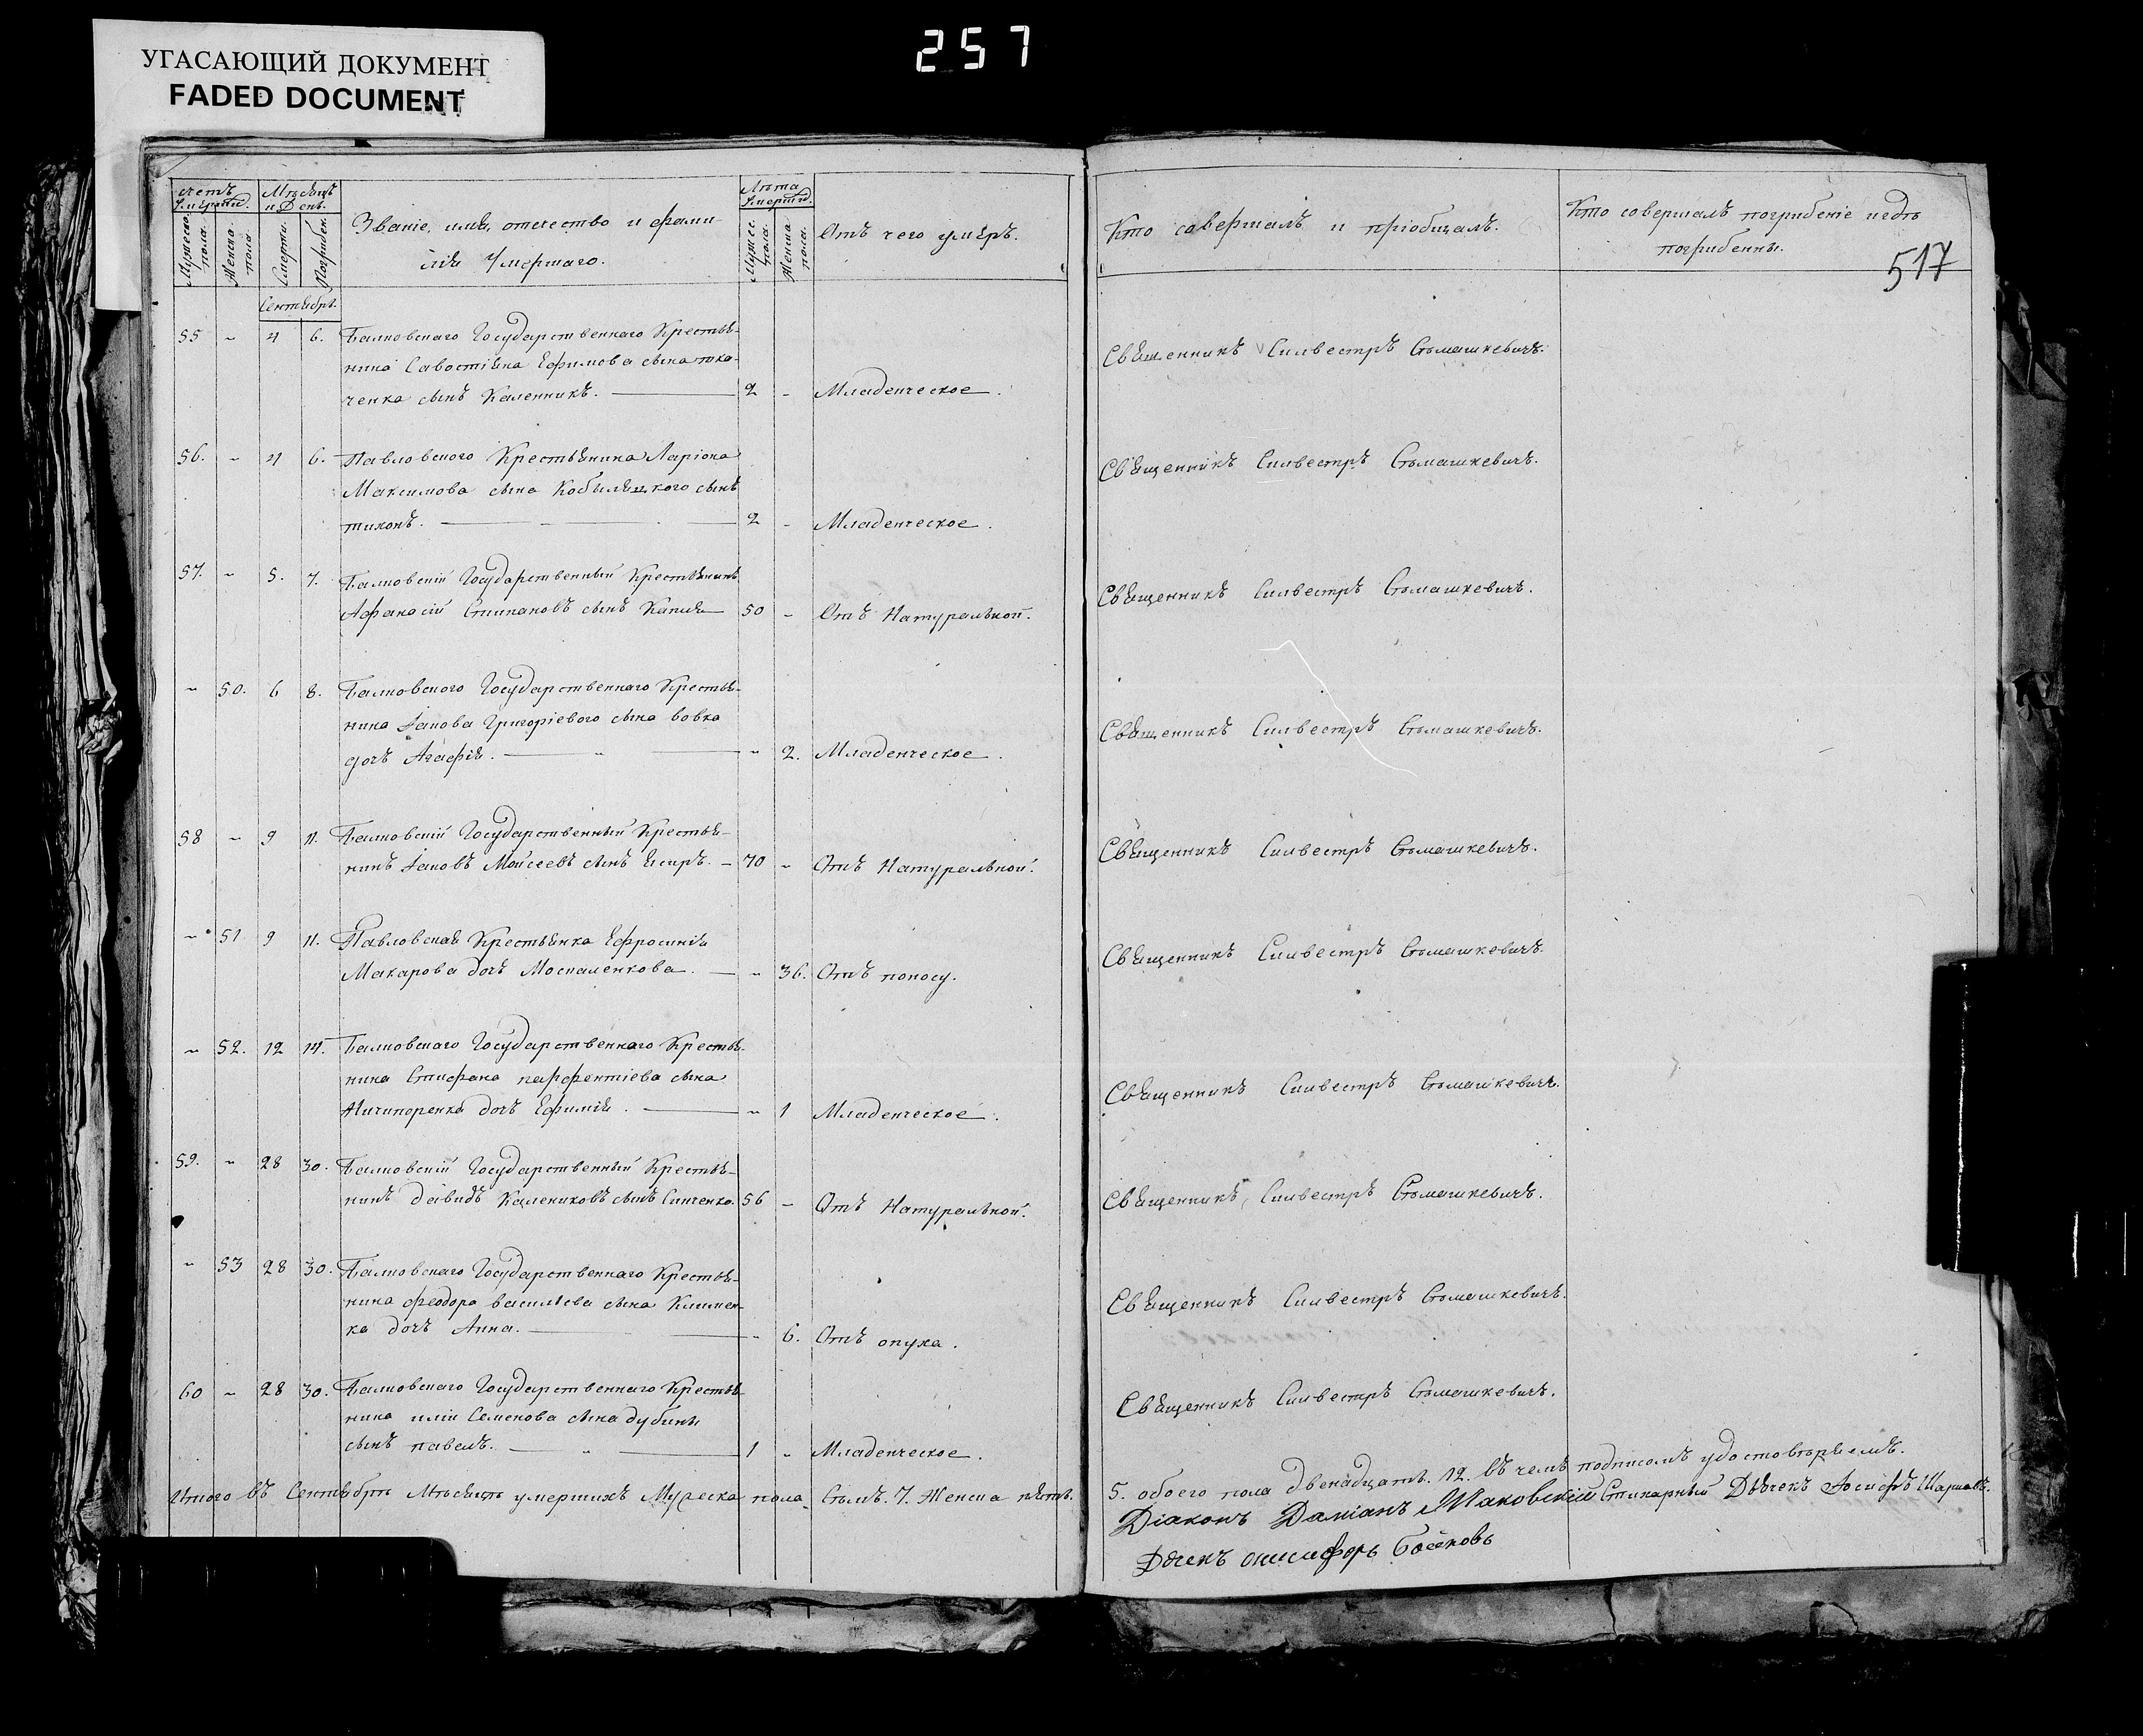 257
УГАСАЮЩИЙ ДОКУМЕНТ
FADED DOCUMENT
517
Счетъ умершихъ.
Мужеска пола.
Женска пола.
Мѣсяцъ и День.
Смерти.
Погрибен.
Званіе, имя, отечество и фами-
лія Умершаго.
Лѣта Умершаго.
Мужес. пола.
Женска пола.
Отъ чего умеръ.
Кто совершалъ и пріобщалъ.
Кто совершалъ погрибеніе игдѣ
погрибенны.
Сентябрь.
55 - 4 6. Балковскаго Государственнаго Крестья-
нина Савостіяна Ефимова сына тка-
ченка сынъ Каленникъ. 2 - Младенческое.
Священникъ Силвестръ Стомашкевичъ.
56. - 4 6. Павловского Крестьянина Ларіона
Максимова сына Кобиляцкого сынъ
тихонъ. 2 - Младенческое.
Священникъ Силвестръ Стомашкевичъ.
57. - 5. 7. Балковскій Государственный Крестьянинъ
Афанасій Стипановъ сынъ Капия 50 - Отъ Натуральной.
Священникъ Силвестръ Стомашкевичъ.
- 50. 6 8. Балковского Государственнаго Крестья-
нина Іакова Григоріевого сына вовка
дочь Агафія. - 2. Младенческое.
Священникъ Силвестръ Стомашкевичъ.
58 - 9 11. Балковскій Государственный Крестья-
нинъ Іаковъ Моісеевъ сынъ - 70 - Отъ Натуральной.
Священникъ Силвестръ Стомашкевичъ.
- 51 9 11. Павловская Крестьянка Ефросинія
Макарова дочь Москаленкова. - 36. Отъ поносу.
Священникъ Силвестръ Стомашкевичъ.
- 52. 12 14. Балковскаго Государственнаго Крестья-
нина Стифана парфентіева сына
Ничипоренка дочь Ефимія. - 1 Младенческое.
Священникъ Силвестръ Стомашкевичъ.
59. - 28 30. Балковскій Государственный Крестья-
нинъ давидъ Калениковъ сынъ Синченко. 56 - Отъ Натуральной.
Священникъ Силвестръ Стомашкевичъ.
- 53 28 30. Балковскаго Государственнаго Крестья-
нина феодора василіева сына Климен-
ка дочь Анна. - 6. Отъ опуха.
Священникъ Силвестръ Стомашкевичъ.
60 - 28 30. Балковскаго Государственнаго Крестья-
нина иліи Семенова сына дубины
сынъ павелъ. 1 - Младенческое.
Священникъ Силвестръ Стомашкевичъ.
Итого въ Сентябрѣ Мѣсяцѣ умершихъ Мужеска пола 7. Женска
5. обоего пола двенадцать. 12. въ чемъ подписомъ удостовѣряемъ.
Діаконъ Даміанъ Маковскій Дьячекъ Іосифъ
Дячекъ онисифоръ